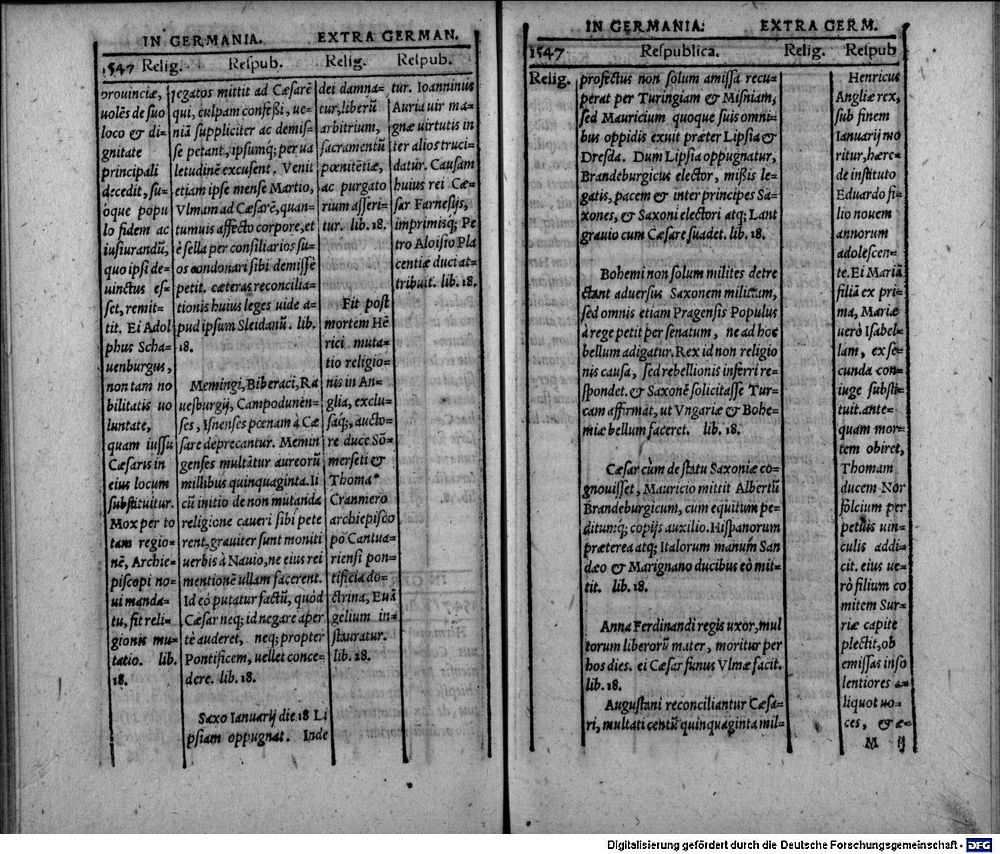 IN GERMANIA. EXTRA GERMAN.
1547 Relig. Respub. Relig. Respub.
prouinciæ,
uolēs de suo
loco & di=
gnitate
principali
decedit, su=
oque popu
lo fidem ac
iusiurandū,
quo ipsi de=
uinctus es=
set, remit=
tit. Ei Adol
phus Scha=
uenburgus,
non tam no
bilitatis uo
luntate,
quam iussu
Cæsaris in
eius locum
substituitur.
Mox per to
tam regio=
nē, Archie=
piscopi no=
ui manda=
tu, fit reli=
gionis mu=
tatio. lib.
18.
legatos mittit ad Cæsarē
qui, culpam confeßi, ue=
niā suppliciter ac demis=
se petant, ipsumq; per ua
letudinē excusent. Venit
etiam ipse mense Martio,
Vlmam ad Cæsarē, quan=
tumuis affecto corpore, et
è sella per consiliarios su=
os condonari sibi demissè
petit. cæteras reconcilia=
tionis huius leges uide a=
pud ipsum Sleidanū. lib.
18.
Memingi, Biberaci, Ra
uesburgij, Campodunen=
ses, Isnenses pœnam à Cæ
sare deprecantur. Memin
genses multātur aureorū
millibus quinquaginta. Ii
cū initio de non mutanda
religione caueri sibi pete
rent, grauiter sunt moniti
uerbis à Nauio, ne eius rei
mentionē ullam facerent.
Id eò putatur factū, quòd
Cæsar neq; id negare aper
tè auderet, neq; propter
Pontificem, uellet conce=
dere. lib. 18.
Saxo Ianuarij die 18 Li
psiam oppugnat. Inde
dei damna=
tur, liberū
arbitrium,
sacramentū
pœnitētiæ,
ac purgato
rium asseri=
tur. lib. 18.
Fit post
mortem Hē
rici muta=
tio religio=
nis in An=
glia, exclu=
saq;, aucto=
re duce Sō=
merseti &
Thoma
Cranmero
archiepisco
po Cantua=
riensi pon=
tificia do=
ctrina, Euā
gelium in=
stauratur.
lib. 18.
tur. Ioanninus
Auria uir ma=
gnæ uirtutis in
ter alios truci=
datur. Causam
huius rei Cæ=
sar Farnesijs,
imprimisq; Pe
tro Aloisio Pla
centiæ duci at=
tribuit. lib. 18.
IN GERMANIA. EXTRA GERM.
1547 Respublica. Relig. Respub
Relig.
profectus non solum amissa recu=
perat per Turingiam & Misniam,
sed Mauricium quoque suis omni=
bus oppidis exuit præter Lipsiā &
Dresda. Dum Lipsia oppugnatur,
Brandeburgicus elector, mißis le=
gatis, pacem & inter principes Sa=
xones, & Saxoni electori atq; Lant
grauio cum Cæsare suadet. lib. 18.
Bohemi non solum milites detre
ctant aduersus Saxonem militum,
sed omnis etiam Pragensis Populus
à rege petit per senatum, ne ad hoc
bellum adigatur. Rex id non religio
nis causa, sed rebellionis inferri re=
spondet. & Saxonē solicitasse Tur=
cam affirmat, ut Vngariæ & Bohe=
miæ bellum faceret. lib. 18.
Cæsar cùm de statu Saxoniæ co=
gnouisset, Mauricio mittit Albertū
Brandeburgicum, cum equitum pe=
ditumq; copijs auxilio. Hispanorum
præterea atq; Italorum manum San
dæo & Marignano ducibus eò mit=
tit. lib. 18.
Anna Ferdinandi regis uxor, mul
torum liberorū mater, moritur per
hos dies. ei Cæsar funus Vlmæ facit.
lib. 18.
Augustani reconciliantur Cæsa=
ri, multati centū quinquaginta mil=
Henricus
Angliæ rex,
sub finem
Ianuarij mo
ritur, hære=
de instituto
Eduardo fi=
lio nouem
annorum
adolescen=
te. Ei Mariā
filiā ex pri=
ma, Mariæ
uerò Isabel=
lam, ex se=
cunda con=
iuge substi=
tuit. ante=
quam mor=
tem obiret,
Thomam
ducem Nor
folcium per
petuis uin=
culis addi=
cit. eius ue=
rò filium co
mitem Sur=
riæ capite
plectit, ob
emissas inso
lentiores a=
liquot uo=
ces, & æ=
M ij
Digitalisierung gefördert durch die Deutsche Forschungsgemeinschaft - DFG